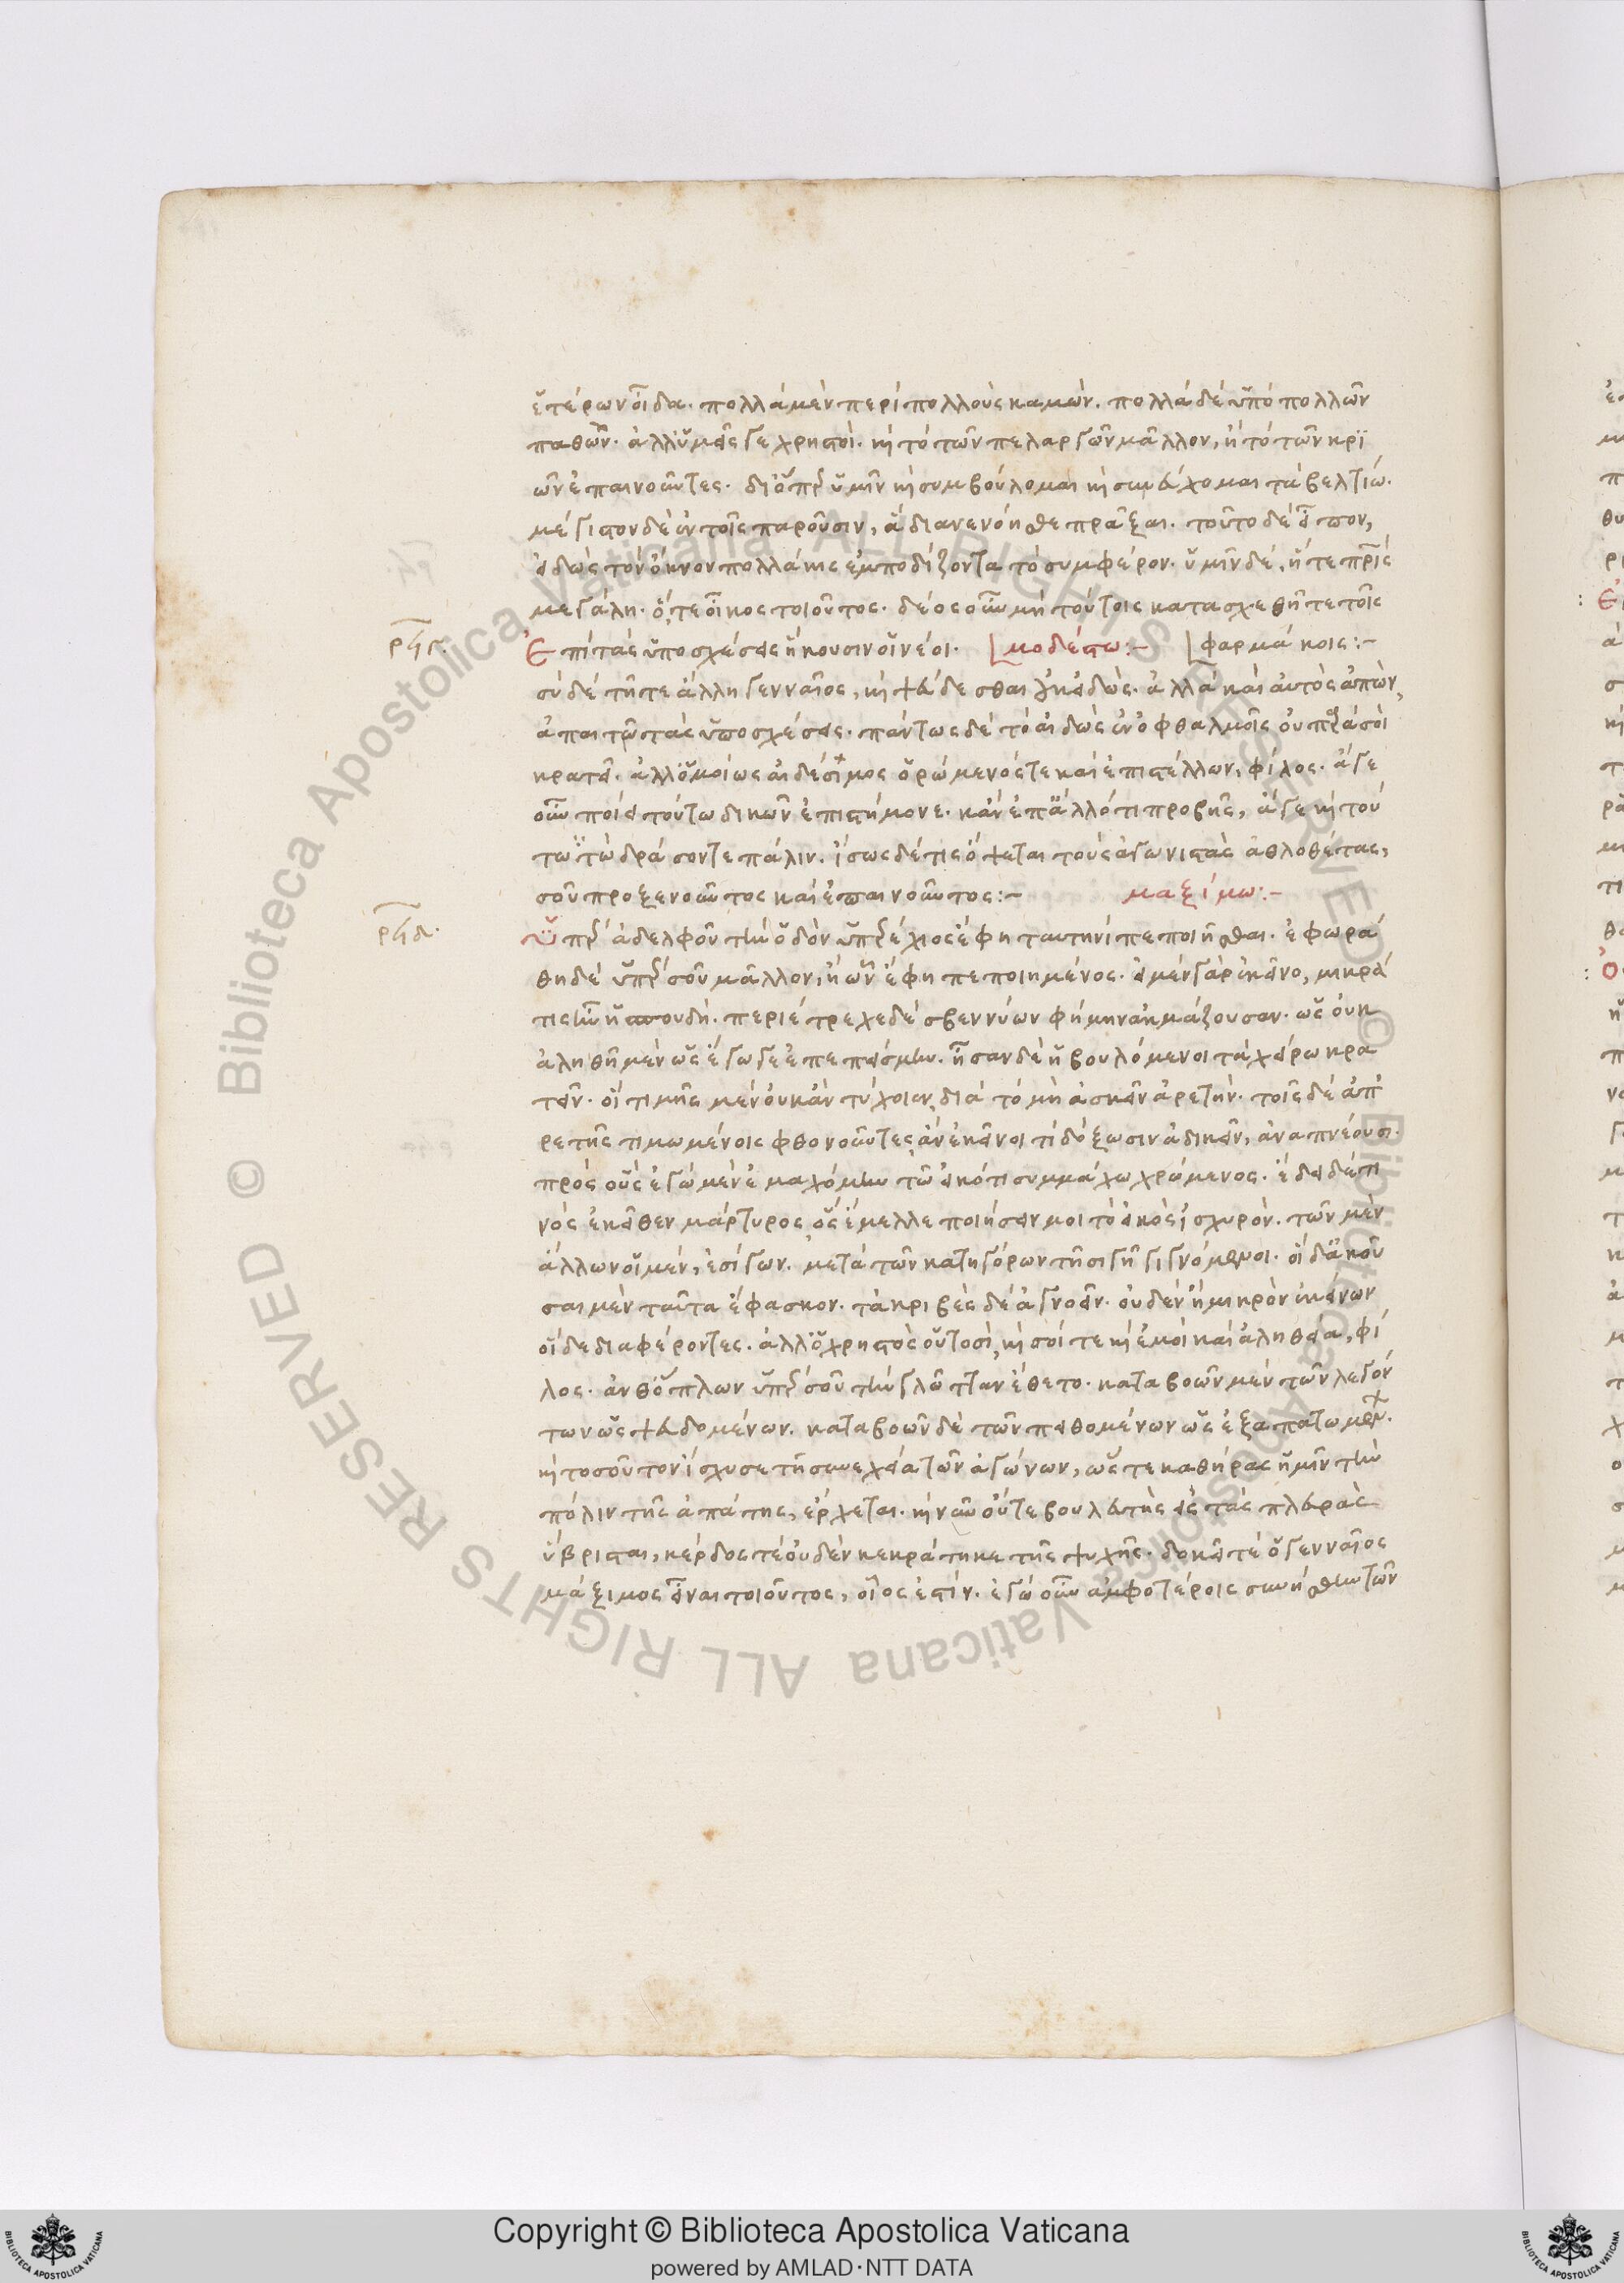 ἑτέρων οἶδα. πολλὰ μὲν περὶ πολλοὺς καμών. πολλὰ δὲ ὑπὸ πολλῶν
παθών. ἀλλ' ὑμεῖς γε χρηστοὶ. καὶ τὸ τῶν πελαργῶν μᾶλλον, ἢ τὸ τῶν κρι
ῶν ἐπαινοῦντες. διόπερ ὑμῖν καὶ συμβούλομαι καὶ συνεύχομαι τὰ βελτίω.
μέγιστον δὲ ἐν τοῖς παροῦσιν, ἃ διανενόησθε πρᾶξαι. τοῦτο δὲ εἶπον,
εἰδὼς τὸν ὄκνον πολλάκις ἐμποδίζοντα τὸ συμφέρον. ὑμῖν δὲ, ἥ τε πατρὶς
μεγάλη. ὅ, τε οἶκος τοιοῦτος. δέος οὖν μὴ τούτοις κατασχεθῆτε τοῖς
ρϟγ. Ἐπὶ τὰς ὑποσχέσεις ἥκουσιν οἱ νέοι. μοδέστω:– φαρμάκοις:–
σὺ δὲ τῇ τε ἄλλῃ γενναῖος, καὶ ψεύδεσθαι οὐκ εἰδὼς. ἀλλὰ καὶ αὐτὸς ἀπὼν,
ἀπαιτῶ τὰς ὑποσχέσεις. πάντως δὲ τὸ αἰδὼς ἐν ὀφθαλμοῖς οὐ παρὰ σοὶ
κρατεῖ. ἀλλ' ὁμοίως αἰδέσιμος ὁρώμενός τε καὶ ἐπιστέλλων, φίλος. ἄγε
οὖν ποίει τούτω δικῶν ἐπιστήμονε. κἂν ἐπ' ἄλλό τι προβῇς, ἄγε καὶ τού
τω ταὐτὼ δράσοντε πάλιν. ἴσως δέ τις ὄψεται τοὺς ἀγωνιστὰς ἀθλοθέτας,
σοῦ προξενοῦντος καὶ ἐπαινοῦντος:– μαξίμω:–
ρϟδ. Ὑπὲρ ἀδελφοῦ τὴν ὁδὸν ὑπερέχιος ἔφη ταυτηνὶ πεποιῆσθαι. ἐφωρά
θη δὲ ὑπὲρ σοῦ μᾶλλον, ἢ ὧν ἔφη πεποιημένος. εἰ μὲν γὰρ ἐκεῖνο, μικρά
τις ἦν ἡ σπουδή. περιέτρεχε δὲ σβεννύων φήμην ἀκμάζουσαν. ὡς οὐκ
ἀληθῆ μὲν ὡς ἔγωγε ἐπεπείσμην. ἦσαν δὲ οἱ βουλόμενοι τὰ χείρω κρα
τεῖν. οἳ τιμῆς μὲν οὐκ ἂν τύχοιεν, διὰ τὸ μὴ ἀσκεῖν ἀρετήν. τοῖς δὲ ἀπ' ἀ
ρετῆς τιμωμένοις φθονοῦντες, ἂν ἐκεῖνοι τὶ δόξωσιν ἀδικεῖν, ἀναπνέουσι.
πρὸς οὓς ἐγὼ μὲν ἐμαχόμην τῷ εἰκότι συμμάχω χρώμενος. ἔδει δέ τι
νὸς ἐκεῖθεν μάρτυρος, ὃς ἔμελλε ποιήσειν μοι τὸ εἰκὸς ἰσχυρόν. τῶν μὲν
ἄλλων οἱ μὲν, ἐσίγων. μετὰ τῶν κατηγόρων τῇ σιγῇ γιγνόμενοι. οἱ δ' ἀκοῦ
σαι μὲν ταῦτα ἔφασκον. τἀκριβὲς δὲ ἀγνοεῖν. οὐδὲν ἢ μικρὸν ἐκείνων
οἵδε διαφέροντες. ἀλλ' ὁ χρηστὸς οὑτοσὶ, καὶ σοί τε καὶ ἐμοὶ καὶ ἀληθεία, φί
λος. ἀνθ' ὅπλων ὑπὲρ σοῦ τὴν γλῶτταν ἔθετο. καταβοῶν μὲν τῶν λεγόν
των ὡς ψευδομένων. καταβοῶν δὲ τῶν πειθομένων ὡς ἐξαπατωμένων.
καὶ τοσοῦτον ἴσχυσε τῇ συνεχεία τῶν ἀγώνων, ὥστε καθήρας ἡμῖν τὴν
πόλιν τῆς ἀπάτης, ἔρχεται. καὶ νῦν οὔτε βουλευτὴς εἰς τὰς πλευρὰς
ὕβρισται, κέρδος τέ οὐδὲν κεκράτηκε τῆς ψυχῆς. δοκεῖ τέ ὁ γενναῖος
μάξιμος εἶναι τοιοῦτος, οἷος ἐστίν. ἐγὼ οὖν ἀμφοτέροις συνήσθην τῶν
Copyright © Biblioteca Apostolica Vaticana
powered by AMLAD·NTT DATA
© Biblioteca Apostolica Vaticana ALL RIGHTS RESERVED © Biblioteca Apostolica Vaticana ALL RIGHTS RESERVED